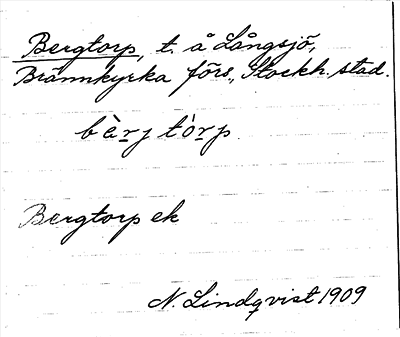 Bergtorp, t. å Långsjö,
Brännkyrka förs., Stockh. stad.
bærj tårp.
Bergtorp ek
N. Lindqvist 1909